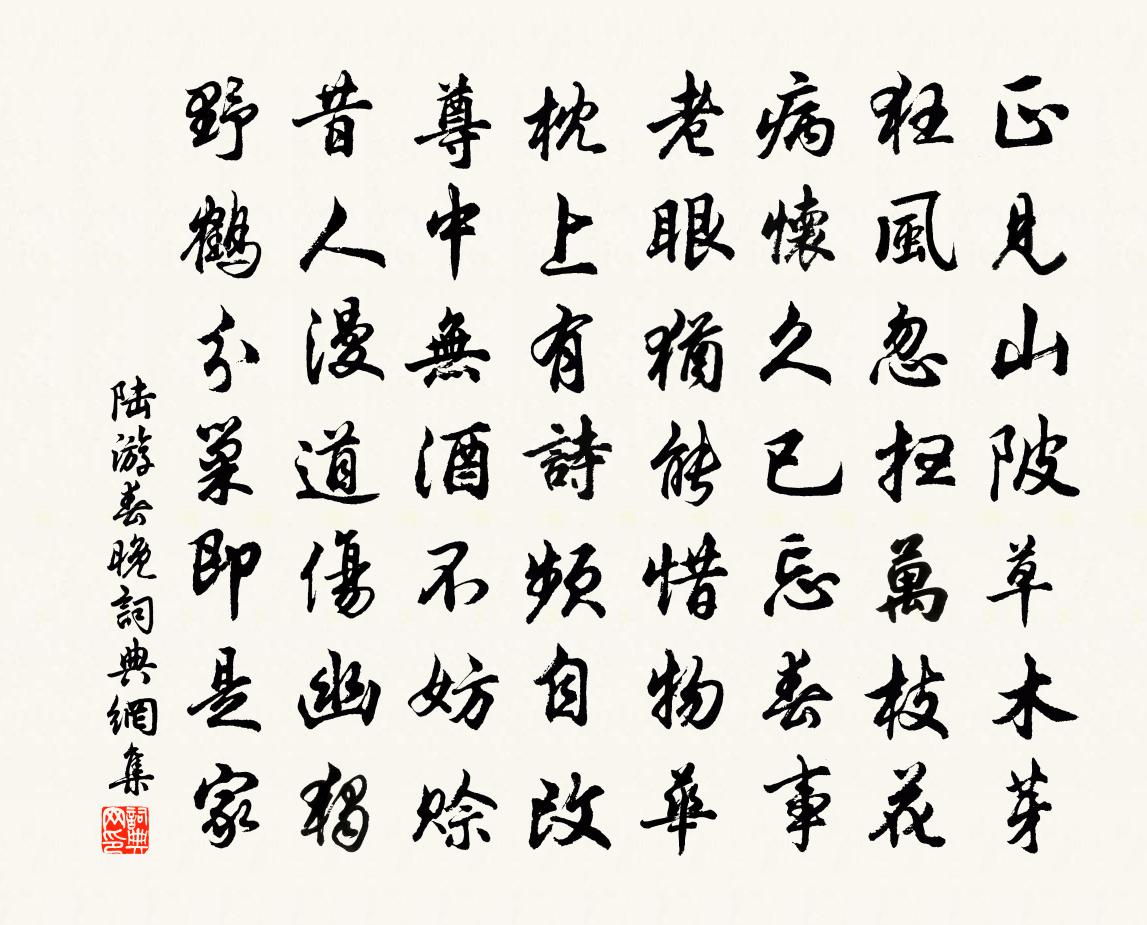 正見山陂草木芽
狂風忽扫萬枝花
病懷久已忘春事
老眼猶能惜物華
枕上有詩頻自改
尊中無酒不妨賒
昔人漫道傷幽獨
野鶴分巢即是家
陆游春晚詞典網集
詞典网印